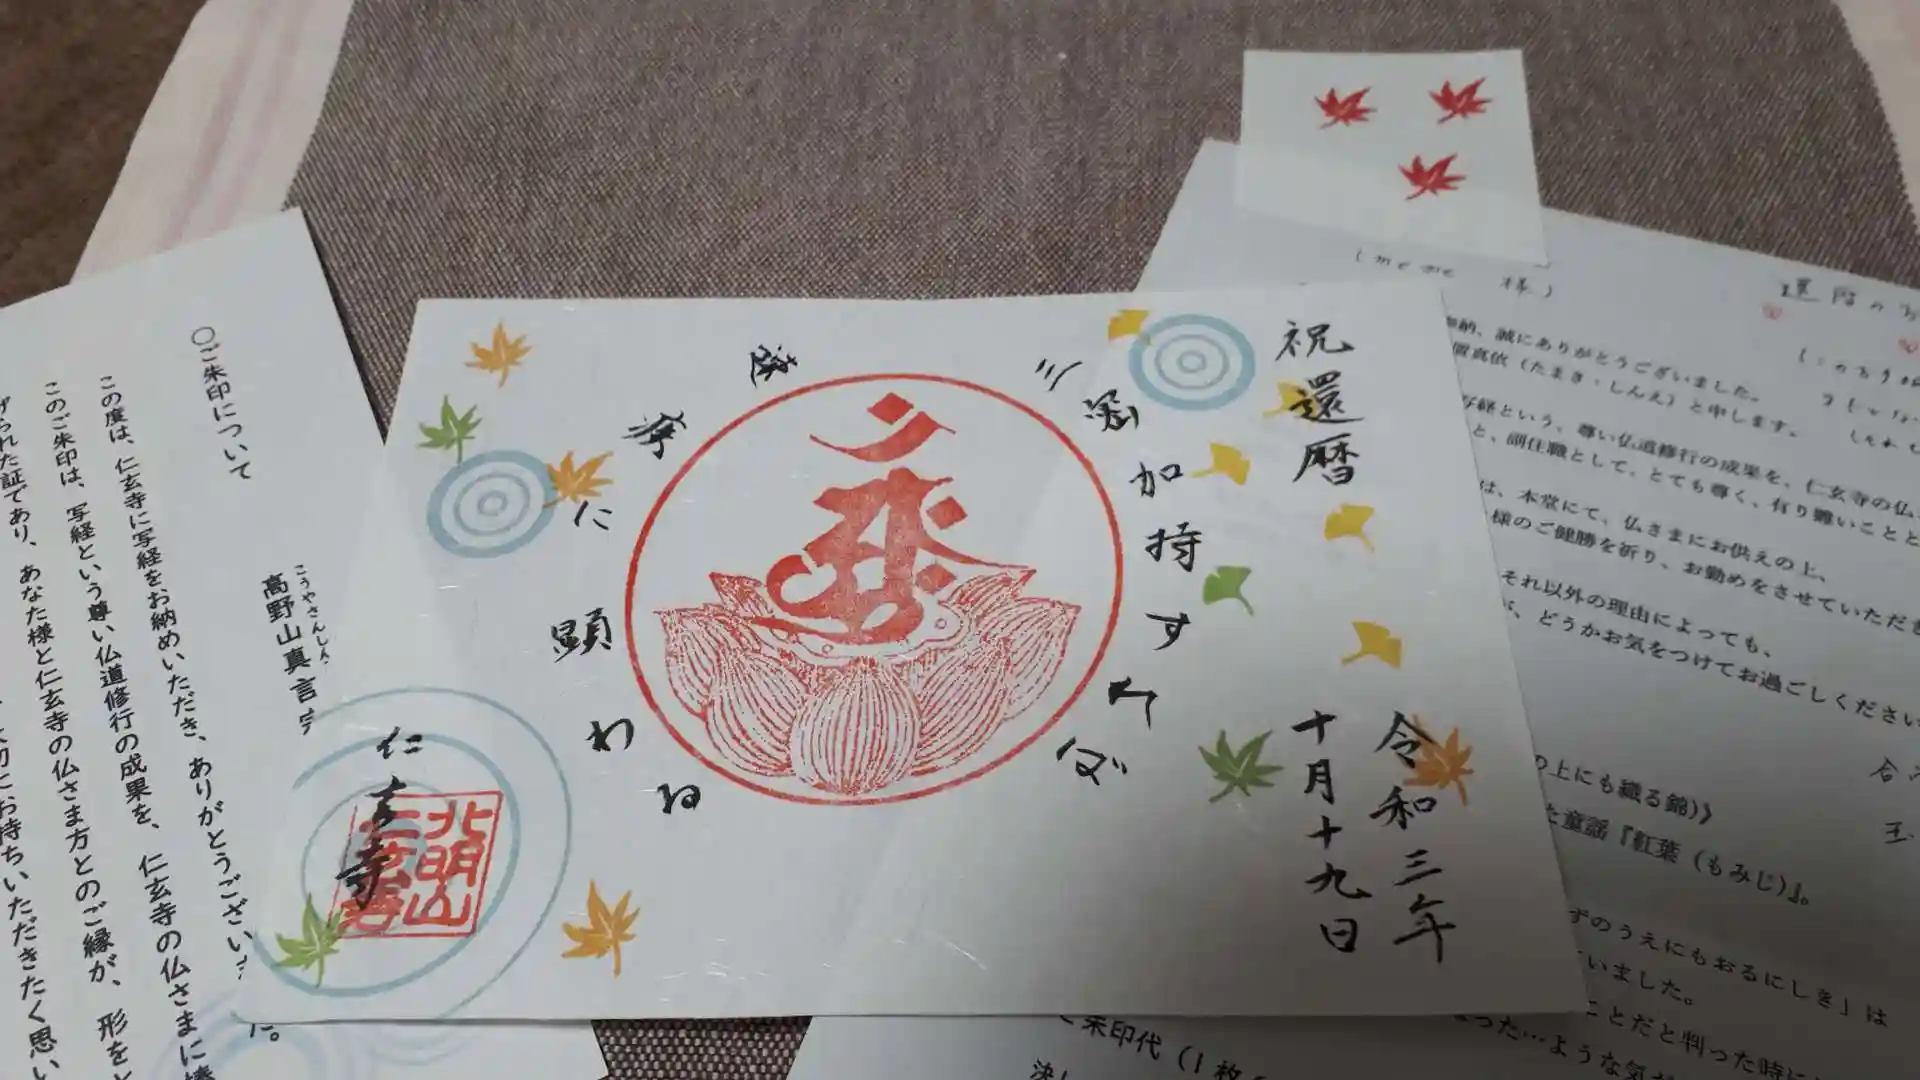 祝還暦
令和三年
十月十九日
三密加持すれば
速疾に顕わる
仁玄寺
北明山
仁玄寺
○ご朱印について
こうやさんしん
高野山真言宗
この度は、仁玄寺に写経をお納めいただき、ありがとうござい
このご朱印は、写経という尊い仏道修行の成果を、仁玄寺の仏さまに捧
げられた証であり、あなた様と仁玄寺の仏さま方とのご縁が、形を
大切にお持ちいただきたく思い
た。
(meme 様)
還暦のお
納、誠にありがとうございました。
置真依（たまき・しんえ）と申します。
写経という、尊い仏道修行の成果を、仁玄寺の仏
と、副住職として、とても尊く、有り難いことと
は、本堂にて、仏さまにお供えの上、
様のご健勝を祈り、お勤めをさせていただき
それ以外の理由によっても、
、どうかお気をつけてお過ごしください
の上にも織る錦）》
た童謡『紅葉（もみじ）』。
ずのうえにもおるにしき」は
いました。
ことだと判った時に
った…ような気が
ご朱印代（1枚
決し